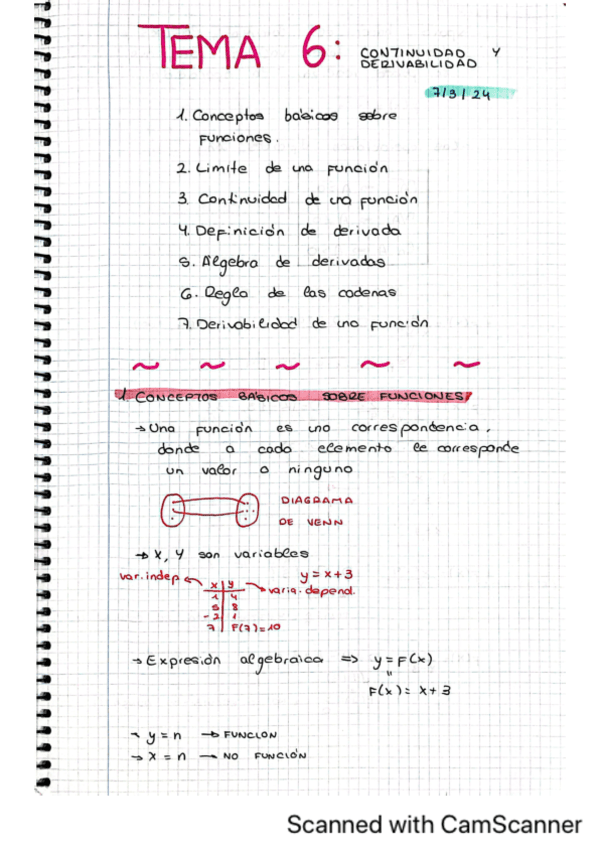 TEMA 6: CONTINUIDAD Y
DERIVABILIDAD
7/3/24
1. Conceptos básicos sobre
funciones.
2. Limite de una función
3. Continuidad de una función
4. Definición de derivada
5. Álgebra de derivadas
6. Regla de las cadenas
7. Derivabilidad de una función
~ ~ ~ ~ ~
1. CONCEPTOS BÁSICOS SOBRE FUNCIONES
→ Una función es una correspondencia,
donde a cada elemento le corresponde
un valor o ninguno
DIAGRAMA
DE VENN
→ X, Y son variables
var. indep ← x | y → varia. depend. y = x + 3
1 | 4
5 | 8
-2 | 1
7 | F(7) = 10
→ Expresión algebraica => y = F(x)
"
F(x) = x + 3
→ y = n → FUNCIÓN
→ x = n → NO FUNCIÓN
Scanned with CamScanner